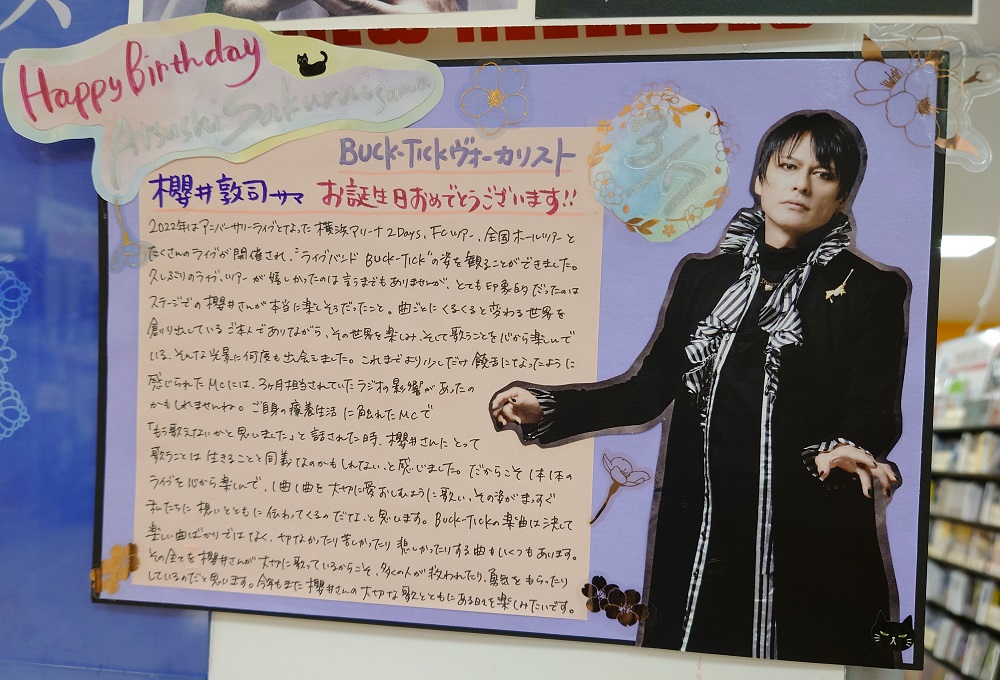 Happy Birthday
Atsushi Sakurai sama
3/7
BUCK-TICKヴォーカリスト
櫻井敦司サマ お誕生日おめでとうございます!!
2022年はアニバーサリーライブとなった横浜アリーナ2Days、FCツアー、全国ホールツアーと
たくさんのライブが開催され、"ライブバンド BUCK-TICK"の姿を観ることができました。
久しぶりのライブ、ツアーが嬉しかったのは言うまでもありませんが、とても印象的だったのは
ステージでの櫻井さんが本当に楽しそうだったこと。曲ごとにくるくると変わる世界を
創り出しているご本人でありながら、その世界を楽しみ、そして歌うことを心から楽しんで
いる、そんな光景に何度も出会えました。これまでより少しだけ饒舌になったように
感じられたMCには、3ヶ月担当されていたラジオの影響があったの
かもしれませんね。ご自身の療養生活に触れたMCで
「もう歌えないかと思いました」と話された時、櫻井さんにとって
歌うことは生きることと同義なのかもしれない、と感じました。だからこそ1本1本の
ライブを心から楽しんで、1曲1曲を大切に愛おしむように歌い、その姿がまっすぐ
私たちに想いとともに伝わってくるのだな、と思います。BUCK-TICKの楽曲は決して
楽しい曲ばかりではなく、切なかったり苦しかったり悲しかったりする曲もいくつもあります。
その全てを櫻井さんが大切に歌っているからこそ、多くの人が救われたり、勇気をもらったり
しているのだと思います。今年もまた櫻井さんの大切な歌とともにある日々を楽しみたいです。